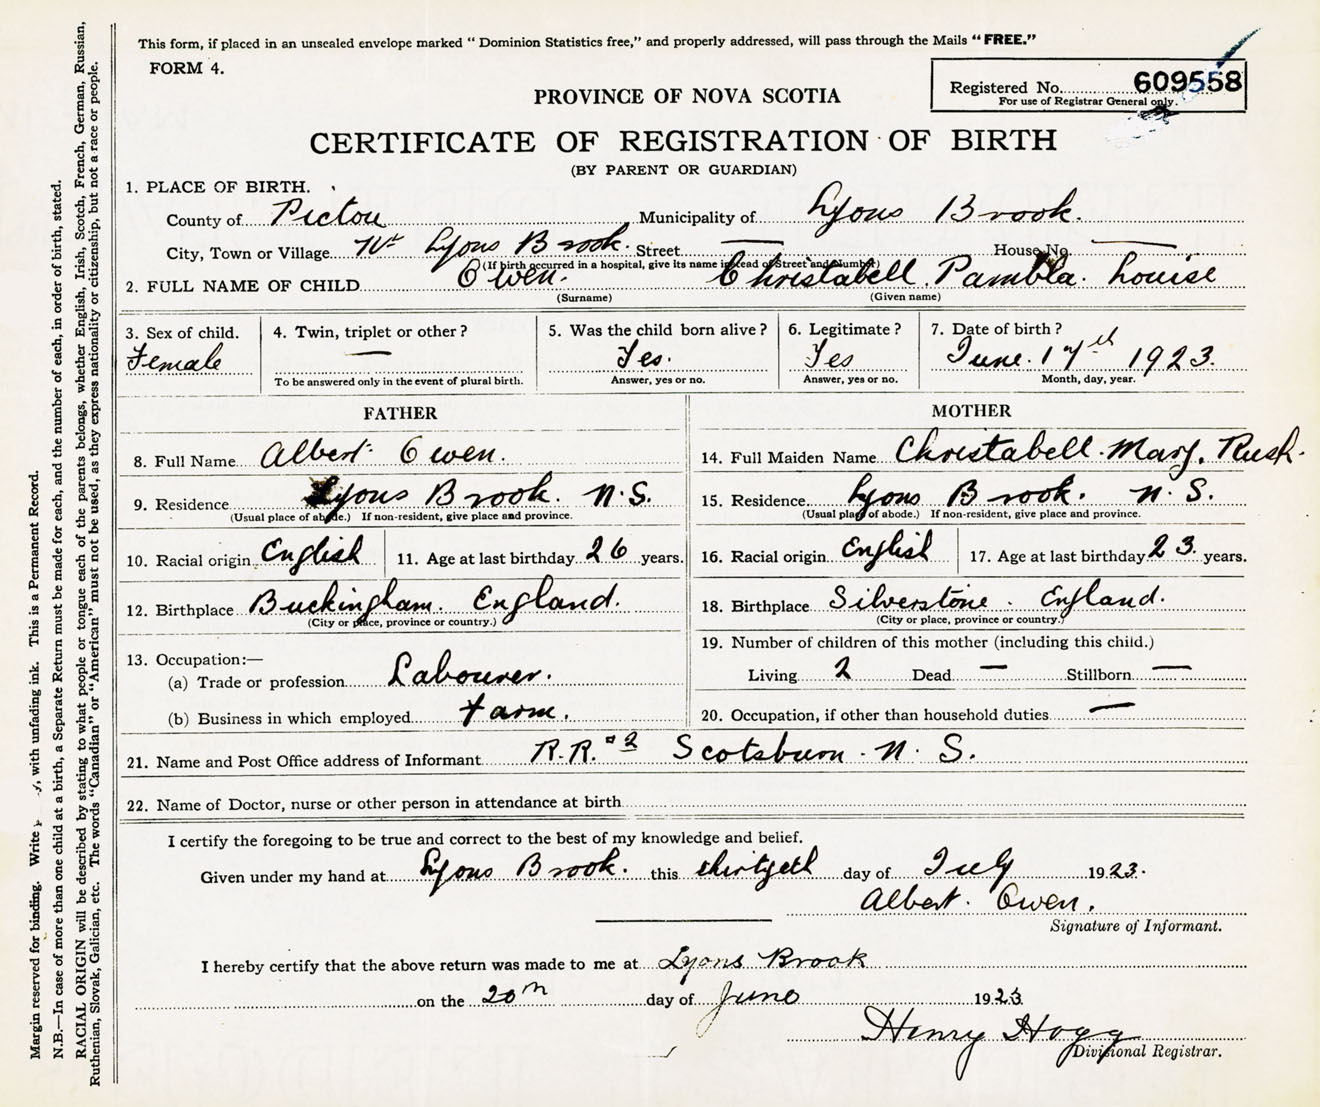 This form, if placed in an unsealed envelope marked "Dominion Statistics free," and properly addressed, will pass through the Mails "FREE."
FORM 4.
Registered No. 609558
For use of Registrar General only.
PROVINCE OF NOVA SCOTIA
CERTIFICATE OF REGISTRATION OF BIRTH
(BY PARENT OR GUARDIAN)
1. PLACE OF BIRTH.
County of Pictou Municipality of Lyons Brook.
City, Town or Village Lyons Brook. Street — House No. —
(If birth occurred in a hospital, give its name instead of Street and Number)
2. FULL NAME OF CHILD Owen. Christabell. Pambla. Louise
(Surname) (Given name)
3. Sex of child. 4. Twin, triplet or other? 5. Was the child born alive? 6. Legitimate? 7. Date of birth?
Female — Yes. Yes June. 17th 1923.
To be answered only in the event of plural birth. Answer, yes or no. Answer, yes or no. Month, day, year.
FATHER MOTHER
8. Full Name Albert Owen. 14. Full Maiden Name Christabell. Mary. Rush.
9. Residence Lyons Brook. N.S. 15. Residence Lyons Brook. N.S.
(Usual place of abode.) If non-resident, give place and province. (Usual place of abode.) If non-resident, give place and province.
10. Racial origin English 11. Age at last birthday 26 years. 16. Racial origin English 17. Age at last birthday 23. years.
12. Birthplace Buckingham. England. 18. Birthplace Silverstone. England.
(City or place, province or country.) (City or place, province or country.)
13. Occupation:— 19. Number of children of this mother (including this child.)
(a) Trade or profession Labourer. Living 2 Dead — Stillborn —
(b) Business in which employed Farm. 20. Occupation, if other than household duties —
21. Name and Post Office address of Informant R.R. #2 Scotsburn. N. S.
22. Name of Doctor, nurse or other person in attendance at birth
I certify the foregoing to be true and correct to the best of my knowledge and belief.
Given under my hand at Lyons Brook. this thirtyeth day of July 1923.
Albert. Owen.
Signature of Informant.
I hereby certify that the above return was made to me at Lyons Brook
on the 20th day of June 1923
Henry Hogg
Divisional Registrar.
Margin reserved for binding. Write with unfading ink. This is a Permanent Record.
N.B.—In case of more than one child at a birth, a Separate Return must be made for each, and the number of each, in order of birth, stated.
RACIAL ORIGIN will be described by stating to what people or tongue each of the parents belongs, whether English, Irish, Scotch, French, German, Russian,
Ruthenian, Slovak, Galician, etc. The words "Canadian" or "American" must not be used, as they express nationality or citizenship, but not a race or people.